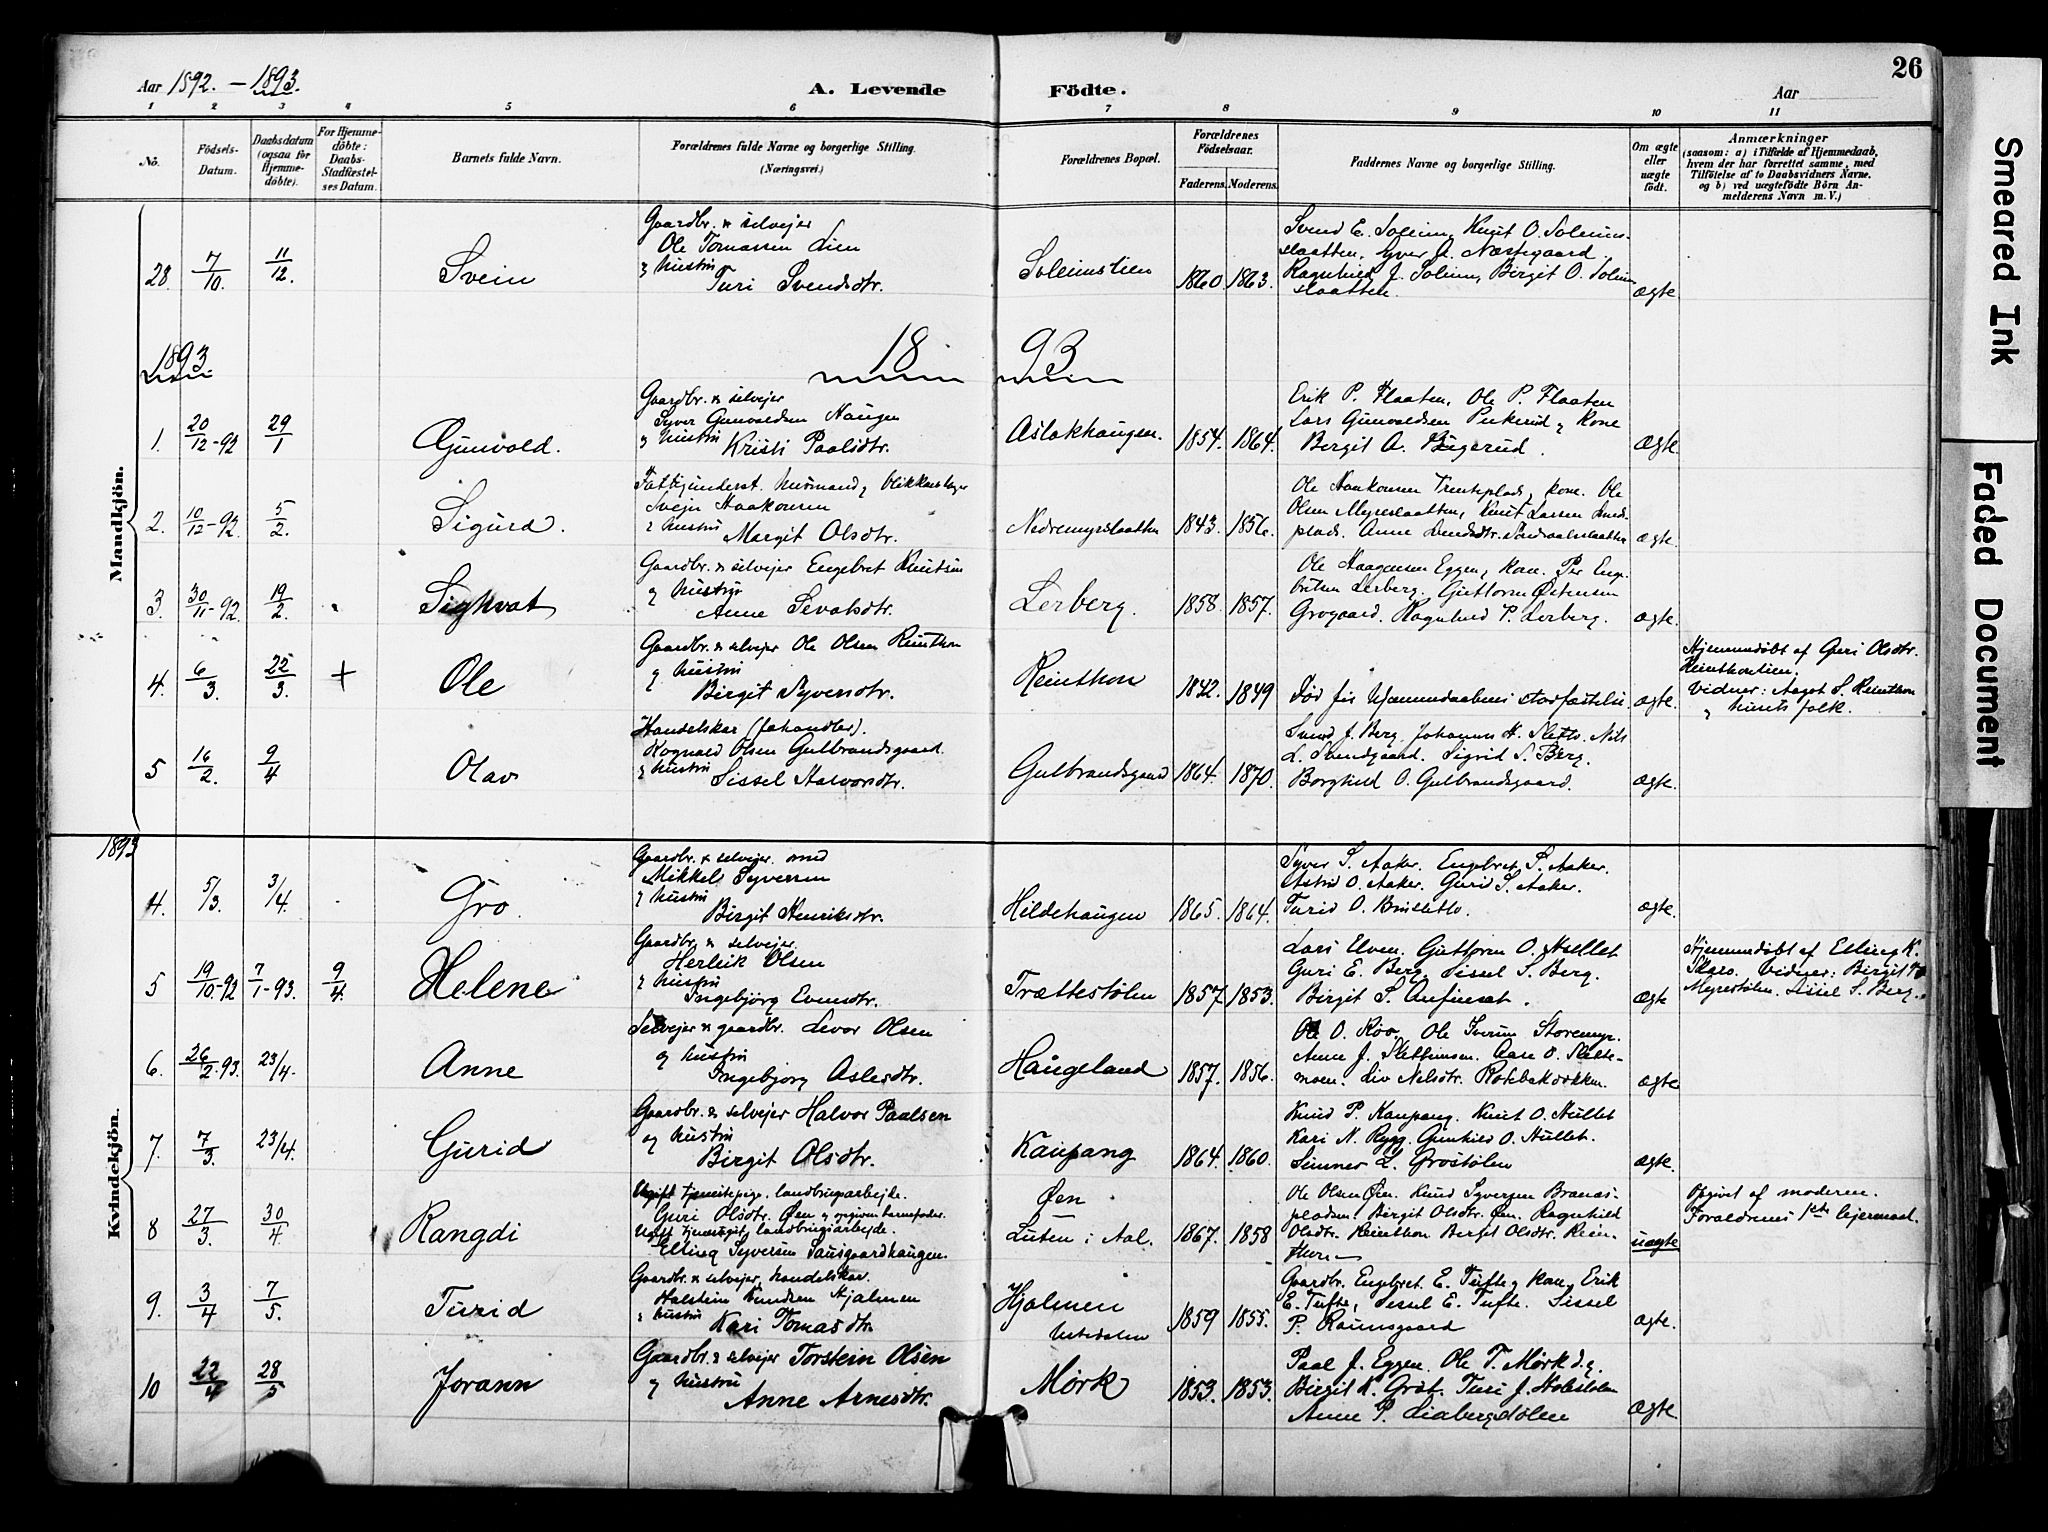 26
Aar 1892. – 1893.
A. Levende Födte.
Aar
1 2 3 4 5 6 7 8 9 10 11
No.
Födsels-Datum.
Daabsdatum (ogsaa for Hjemmedöbte).
For Hjemmedöbte: Daabs-Stadfæstelses Datum.
Barnets fulde Navn.
Forældrenes fulde Navne og borgerlige Stilling. (Næringsvei.)
Forældrenes Bopæl.
Forældrenes Födselsaar.
Faderens. Moderens.
Faddernes Navne og borgerlige Stilling.
Om ægte eller uægte födt.
Anmærkninger
(saasom: a) i Tilfælde af Hjemmedaab, hvem der har forrettet samme, med Tilföielse af to Daabsvidners Navne. og b) ved uægtefödte Börn Anmelderens Navn m. V.)
Mandkjön.
28. 7/10. 11/12. Svein
Gaardbr. & selvejer
Ole Tomassen Lien
og hustru
Turi Svendsdtr.
Soleimslien 1860. 1863.
Svend E. Soleim, Knut O. Soleims-
slaatten, Syver A. Næstegaard
Ragnhild J. Soleim, Birgit O. Soleim
slaatten.
ægte
1893
18 93
1. 20/12-92 29/1 Gunvald.
Gaardbr. & selvejer
Syver Gunvaldsen Haugen
og hustru
Kristi Paalsdtr.
Aslakhaugen. 1854. 1864.
Erik P. Flaaten, Ole P. Flaaten
Lars Gunvaldsen og kone
Bergit A.
ægte
2. 10/12-92. 5/2. Sigurd.
Svejn Haakonsen
og hustru
Margit Olsdtr.
Nedremyrslaatten 1843. 1856.
Ole Haakonsen og kone. Ole
Olsen Myreslaatten, Knut Larsen
plads. Anne
ægte.
3. 30/11-92. 19/2. Sighvat
Gaardbr. & selvejer Engebret Knutsen
og hustru
Anne Sevatsdtr.
Lerberg. 1858. 1857.
Ole Haagensen Eggen og kone. Per Enge-
britsen Lerberg. Guttorm Østensen
Grøgaard. Ragnhild P. Lerberg.
ægte.
4. 6/3. 22/3. + Ole
Gaardbr. & selvejer Ole Olsen Reinthon
og hustru
Birgit Syversdtr.
Reinthon 1842. 1849
Død før Hjemmedaabens stadfæstelse.
ægte.
Hjemmedøbt af Guri Olsdtr.
Reinthonlien.
Vidner: Aagot S. Reinthon
og husets folk.
5 16/2. 9/4 Olav
Handelskar (fæhandler).
Rognald Olsen Gulbrandsgaard
og hustru
Sissel Halvorsdtr.
Gulbrandsgaard 1864. 1870.
Svend J. Berg. Johannes H. Sletto. Nils
L. Svendgaard. Sigrid S. Berg.
Borghild O. Gulbrandsgaard.
ægte.
1893
Kvindekjön.
4. 5/3. 3/4. Gro.
Gaardbr. & selvejer. smed
Mikkel Syversen
og hustru
Birgit Henriksdtr.
Hildehaugen 1865. 1864.
Syver S. Aaker. Engebret S. Aaker.
Astrid O. Aaker. Guri S. Aaker.
Turid O.
ægte.
5 19/10-92 7/1-93. 9/4. Helene
Gaardbr. & selvejer.
Herleik Olsen
og hustru
Ingebjörg Evensdtr.
Trættestølen 1857 1853.
Lars Elven. Guttorm O. Hellet
Guri E. Berg. Sissel S. Berg.
Birgit S. Anfinset.
ægte
Hjemmedøbt af Elling K.
Skaro. Vidner: Birgit
Myrestølen. Sissel S. Berg.
6. 26/2-93. 23/4. Anne
Selvejer & gaardbr. Levor Olsen
og hustru
Ingebjørg Aslesdtr.
Haugeland 1857. 1856.
Ole O. Roo. Ole Iversen Storemyr.
Anne J. Slettemoen. Aase O. Slette-
moen. Liv Nilsdtr.
ægte
7. 7/3. 23/4. Gurid
Gaardbr. & selvejer Halvor Paalsen
og hustru
Birgit Olsdtr.
Kaupang 1864. 1860.
Knud P. Kaupang. Knut O. Hullet
Kari N. Rygg. Gunhild O. Hullet.
L. Grøstølen
ægte.
8 27/3. 30/4 Rangdi
Ugift tjenestepige. landbrugsarbejde.
Guri Olsdtr. Øen og opgiven barnefader.
Ugift landbrugsarbejde.
Elling Syversen Sausgaardhaugen.
Øen
Luten i Aal. 1867. 1858
Ole Olsen Øen. Knud Syversen Branas-
pladsen. Birgit Olsdtr. Øen. Ragnhild
Olsdtr. Reinthon Berget Olsdtr. Rein-
thon
uægte
Opgivet af moderen.
Forældrenes 1ste lejermaal.
9. 3/4 7/5. Turid
Gaardbr. & selvejer, handelskar.
Halstein Knudsen Hjalmen
og hustru
Kari Tomasdtr.
Hjalmen
Ustedalen 1859 1855.
Gaardbr. Engebret E. Tufte og kone, Erik
E. Tufte, Sissel E. Tufte. Sissel
P. Raunsgaard
ægte.
10 22/4 28/5 Jorann
Gaardbr. & selvejer Torstein Olsen
og hustru
Anne Arnesdtr.
Mørk 1853. 1853.
Paal J. Eggen. Ole T. Mørk d.y.
Birgit K. Grøt. Turi J.
Anne P. Liabergsdølen
ægte
Smeared Ink
Faded Document